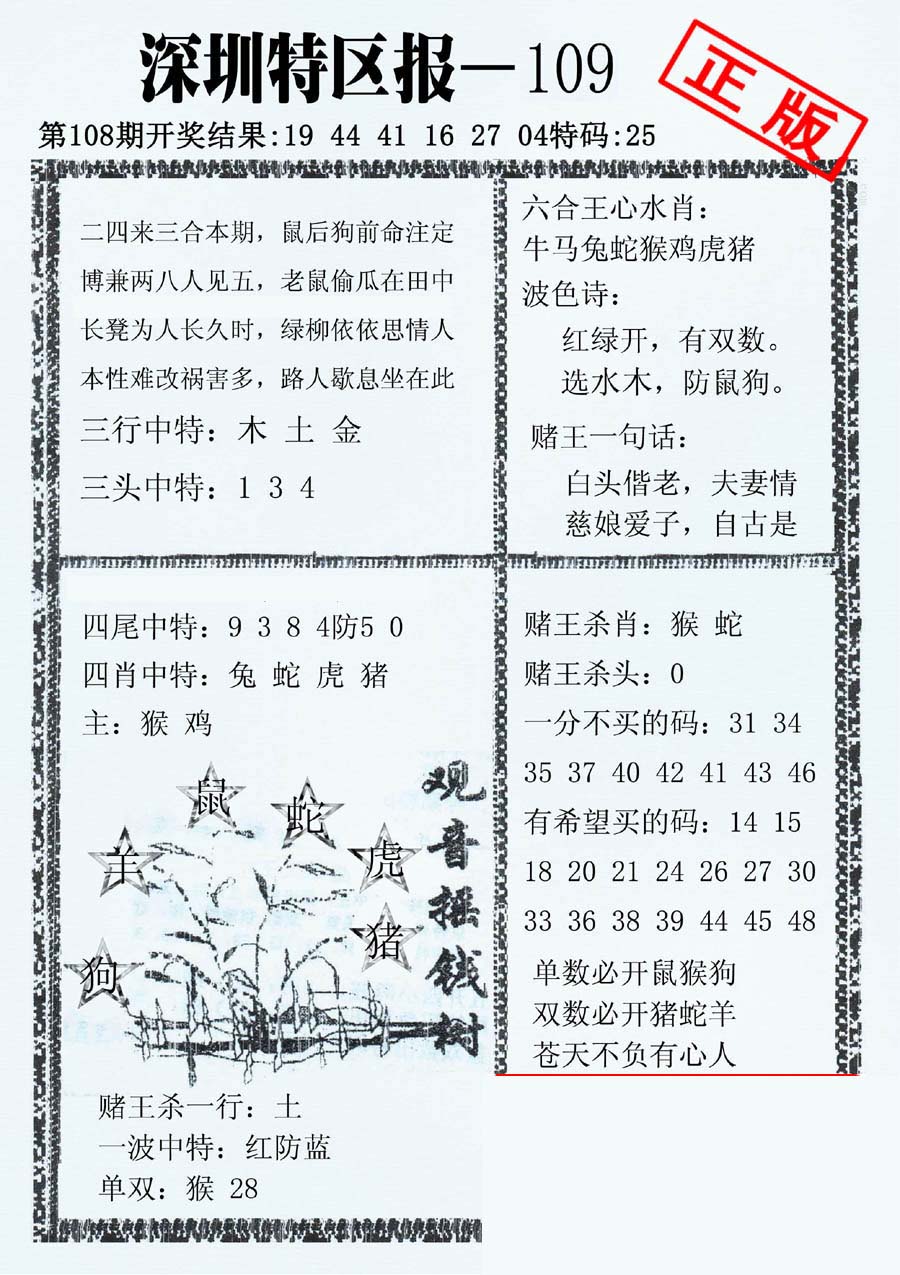 深圳特区报—109
正版
第108期开奖结果:19 44 41 16 27 04特码:25
二四来三合本期，鼠后狗前命注定
博兼两八人见五，老鼠偷瓜在田中
长凳为人长久时，绿柳依依思情人
本性难改祸害多，路人歇息坐在此
三行中特：木 土 金
三头中特：1 3 4
六合王心水肖：
牛马兔蛇猴鸡虎猪
波色诗：
红绿开，有双数。
选水木，防鼠狗。
赌王一句话：
白头偕老，夫妻情
慈娘爱子，自古是
四尾中特：9 3 8 4防5 0
四肖中特：兔 蛇 虎 猪
主：猴 鸡
鼠
蛇
羊
虎
猪
狗
观音摇钱树
赌王杀一行：土
一波中特：红防蓝
单双：猴 28
赌王杀肖：猴 蛇
赌王杀头：0
一分不买的码：31 34
35 37 40 42 41 43 46
有希望买的码：14 15
18 20 21 24 26 27 30
33 36 38 39 44 45 48
单数必开鼠猴狗
双数必开猪蛇羊
苍天不负有心人